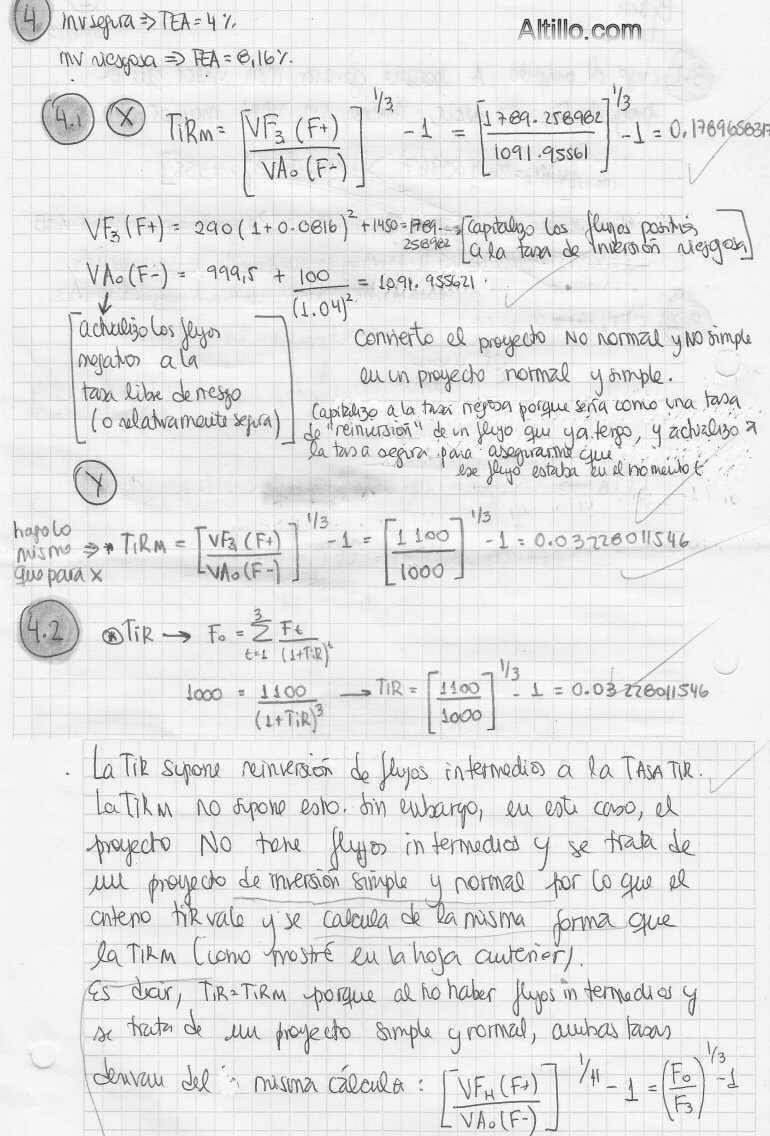 4 inv segura ⇒ TEA = 4%.
Altillo.com
inv riesgosa ⇒ TEA = 8,16%.
4.1 X TiRM = [VF₃(F+) / VA₀(F-)]^1/3 - 1 = [1789.258982 / 1091.95561]^1/3 - 1 = 0.178965831
VF₃(F+) = 290(1+0.0816)² + 1450 = 1789.258982 → [Capitalizo los flujos positivos
a la tasa de inversión riesgosa]
VA₀(F-) = 999,5 + 100/(1.04)² = 1091.955621.
[actualizo los flujos
negativos a la
tasa libre de riesgo
(o relativamente segura)]
Convierto el proyecto NO normal y NO simple
en un proyecto normal y simple.
Capitalizo a la tasa riesgosa porque sería como una tasa
de "reinversión" de un flujo que ya tengo, y actualizo a
la tasa segura para asegurarme que
ese flujo estaba en el momento t
Y
hago lo
mismo
que para X
⇒ * TiRM = [VF₃(F+) / VA₀(F-)]^1/3 - 1 = [1100 / 1000]^1/3 - 1 = 0.03228011546
4.2 * TiR → F₀ = 3 Σ t=1 Ft / (1+TiR)^t
1000 = 1100 / (1+TiR)³ → TiR = [1100 / 1000]^1/3 - 1 = 0.03228011546
. La TiR supone reinversión de flujos intermedios a la TASA TIR.
La TiRM no supone esto. Sin embargo, en este caso, el
proyecto NO tiene flujos intermedios y se trata de
un proyecto de inversión simple y normal por lo que el
criterio TiR vale y se calcula de la misma forma que
la TiRM (como mostré en la hoja anterior).
Es decir, TiR=TiRM porque al no haber flujos intermedios y
se trata de un proyecto simple y normal, ambas tasas
derivan del misma cálculo : [VFH(F+) / VA₀(F-)]^1/H - 1 = (F₀ / F₃)^1/3 - 1